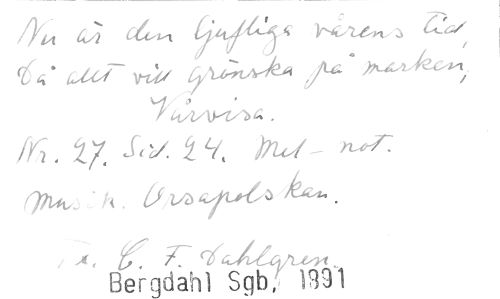 Nu är den ljufliga vårens tid,
Då allt vill grönska på marken,
Vårvisa.
Nr. 27. Sid. 24. Mel-not.
musik. Orsapolskan.
Fr. C. F. Dahlgren.
Bergdahl Sgb, 1891